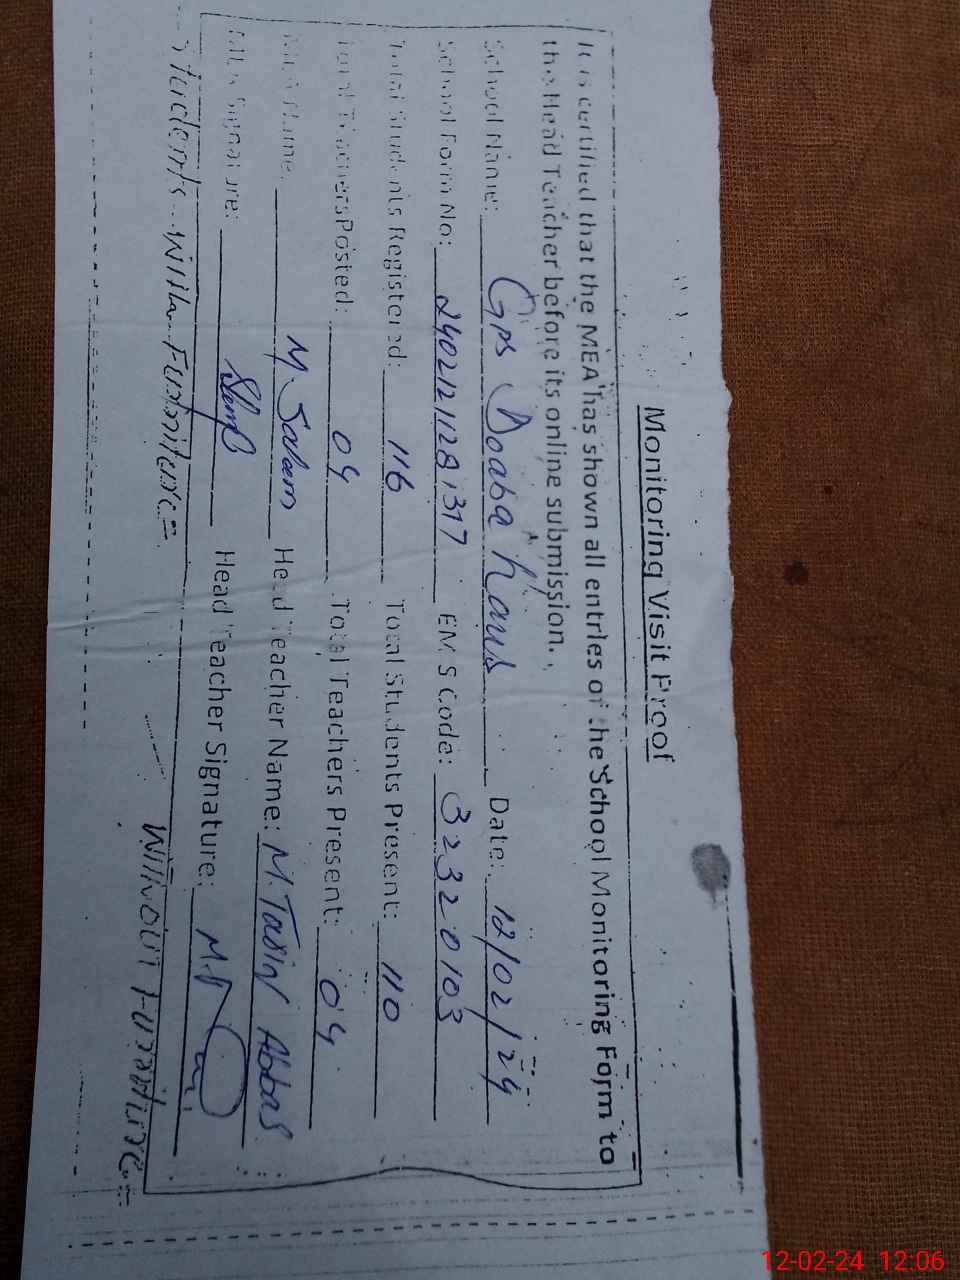 Monitoring Visit Proof
It is certified that the MEA has shown all entries of the School Monitoring Form to
the Head Teacher before its online submission.
School Name: Gps Doaba Date: 12/02/24
School Form No: EMIS Code: 32320103
Total Students Registered: 116 Total Students Present: 110
Total Teachers Posted: 04 Total Teachers Present: 04
MEA Name: M. Saleem Head Teacher Name: M. Abbas
MEA Signature: Head Teacher Signature:
Students With Furniture= Without Furniture=
12-02-24 12:06